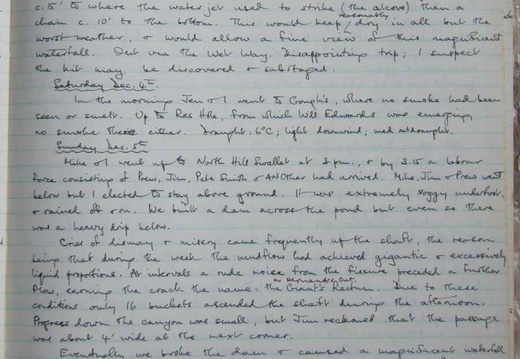 c. 15' to where the water jet used to strike (the alcove) then a
chain c. 10' to the bottom. This would keep reasonably dry in all but the
worst weather, & would allow a fine view of this magnificent
waterfall. Out via the Wet Way. Disappointing trip; I suspect
the kit may be discovered & sabotaged.
Saturday Dec. 4th.
In the morning Jen & I went to Gough's, where no smoke had been
seen or smelt. Up to Res Hole, from which Will Edwards was emerging,
no smoke there either. Draught: 6°C; light downwind; med
Sunday Dec. 5th
Mike & I went up to North Hill Swallet at 3 pm., & by 3.15 a labour
force consisting of Prew, Jim, Pete Smith & ANOther had arrived. Mike, Jim & Prew went
below but I elected to stay above ground. It was extremely soggy underfoot,
& rained off & on. We built a dam across the pond but even so there
was a heavy drip below.
Cries of dismay & misery came frequently up the shaft, the reason
being that during the week the mudflow had achieved gigantic & excessively
liquid proportions. At intervals a rude noise from the fissure preceded a further
flow, earning the crack the name: the Giant's Rectum. Due to these
conditions only 16 buckets ascended the shaft during the afternoon.
Progress down the canyon was small, but Jim reckoned that the passage
was about 4' wide at the next corner.
Eventually we broke the dam & caused a magnificent waterfall